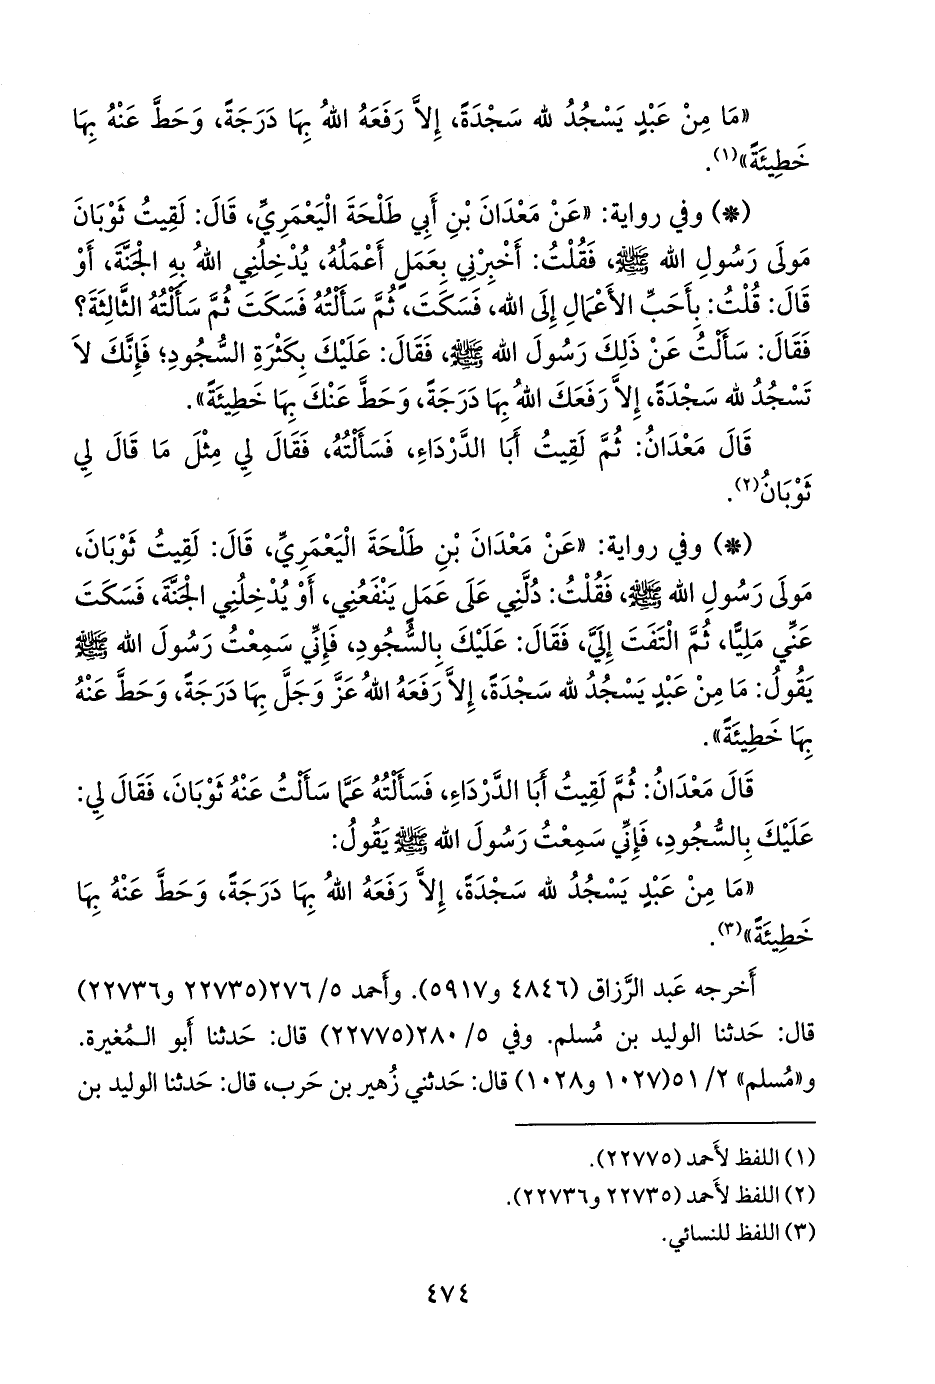 «مَا مِنْ عَبْدٍ يَسْجُدُ لله سَجْدَةً، إِلاَّ رَفَعَهُ اللهُ بِهَا دَرَجَةً، وَحَطَّ عَنْهُ بِهَا
خَطِيئَةً»(١).
(*) وفي رواية: «عَنْ مَعْدَانَ بْنِ أَبِي طَلْحَةَ الْيَعْمَرِيِّ، قَالَ: لَقِيتُ ثَوْبَانَ
مَولَى رَسُولِ الله ﷺ، فَقُلْتُ: أَخْبِرْنِي بِعَمَلٍ أَعْمَلُهُ، يُدْخِلُنِي اللهُ بِهِ الجَنَّةَ، أَوْ
قَالَ: قُلْتُ: بِأَحَبِّ الأَعْمَالِ إِلَى الله، فَسَكَتَ، ثُمَّ سَأَلْتُهُ فَسَكَتَ ثُمَّ سَأَلْتُهُ الثَّالِثَةَ؟
فَقَالَ: سَأَلْتُ عَنْ ذَلِكَ رَسُولَ الله ﷺ، فَقَالَ: عَلَيْكَ بِكَثْرَةِ السُّجُودِ؛ فَإِنَّكَ لاَ
تَسْجُدُ لله سَجْدَةً، إِلاَّ رَفَعَكَ اللهُ بِهَا دَرَجَةً، وَحَطَّ عَنْكَ بِهَا خَطِيئَةً».
قَالَ مَعْدَانُ: ثُمَّ لَقِيتُ أَبَا الدَّرْدَاءِ، فَسَأَلْتُهُ، فَقَالَ لِي مِثْلَ مَا قَالَ لِي
ثَوْبَانُ(٢).
(*) وفي رواية: «عَنْ مَعْدَانَ بْنِ طَلْحَةَ الْيَعْمَرِيِّ، قَالَ: لَقِيتُ ثَوْبَانَ،
مَولَى رَسُولِ الله ﷺ، فَقُلْتُ: دُلَّنِي عَلَى عَمَلٍ يَنْفَعُنِي، أَوْ يُدْخِلُنِي الجَنَّةَ، فَسَكَتَ
عَنِّي مَلِيًّا، ثُمَّ الْتَفَتَ إِلَيَّ، فَقَالَ: عَلَيْكَ بِالسُّجُودِ، فَإِنِّي سَمِعْتُ رَسُولَ الله ﷺ
يَقُولُ: مَا مِنْ عَبْدٍ يَسْجُدُ لله سَجْدَةً، إِلاَّ رَفَعَهُ اللهُ عَزَّ وَجَلَّ بِهَا دَرَجَةً، وَحَطَّ عَنْهُ
بِهَا خَطِيئَةً».
قَالَ مَعْدَانُ: ثُمَّ لَقِيتُ أَبَا الدَّرْدَاءِ، فَسَأَلْتُهُ عَمَّا سَأَلْتُ عَنْهُ ثَوْبَانَ، فَقَالَ لِي:
عَلَيْكَ بِالسُّجُودِ، فَإِنِّي سَمِعْتُ رَسُولَ الله ﷺ يَقُولُ:
«مَا مِنْ عَبْدٍ يَسْجُدُ لله سَجْدَةً، إِلاَّ رَفَعَهُ اللهُ بِهَا دَرَجَةً، وَحَطَّ عَنْهُ بِهَا
خَطِيئَةً»(٣).
أَخرجه عَبد الرَّزاق (٤٨٤٦ و٥٩١٧). وأَحمد ٥/ ٢٧٦(٢٢٧٣٥ و٢٢٧٣٦)
قال: حَدثنا الوليد بن مُسلم. وفي ٥/ ٢٨٠(٢٢٧٧٥) قال: حَدثنا أَبو المُغيرة.
و«مُسلم» ٢/ ٥١(١٠٢٧ و١٠٢٨) قال: حَدثني زُهير بن حَرب، قال: حَدثنا الوليد بن
(١) اللفظ لأَحمد (٢٢٧٧٥).
(٢) اللفظ لأَحمد (٢٢٧٣٥ و٢٢٧٣٦).
(٣) اللفظ للنسائي.
٤٧٤